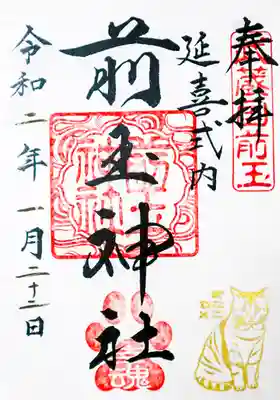 奉拝
延喜式内
前玉神社
令和二年一月二十二日
前玉
魂